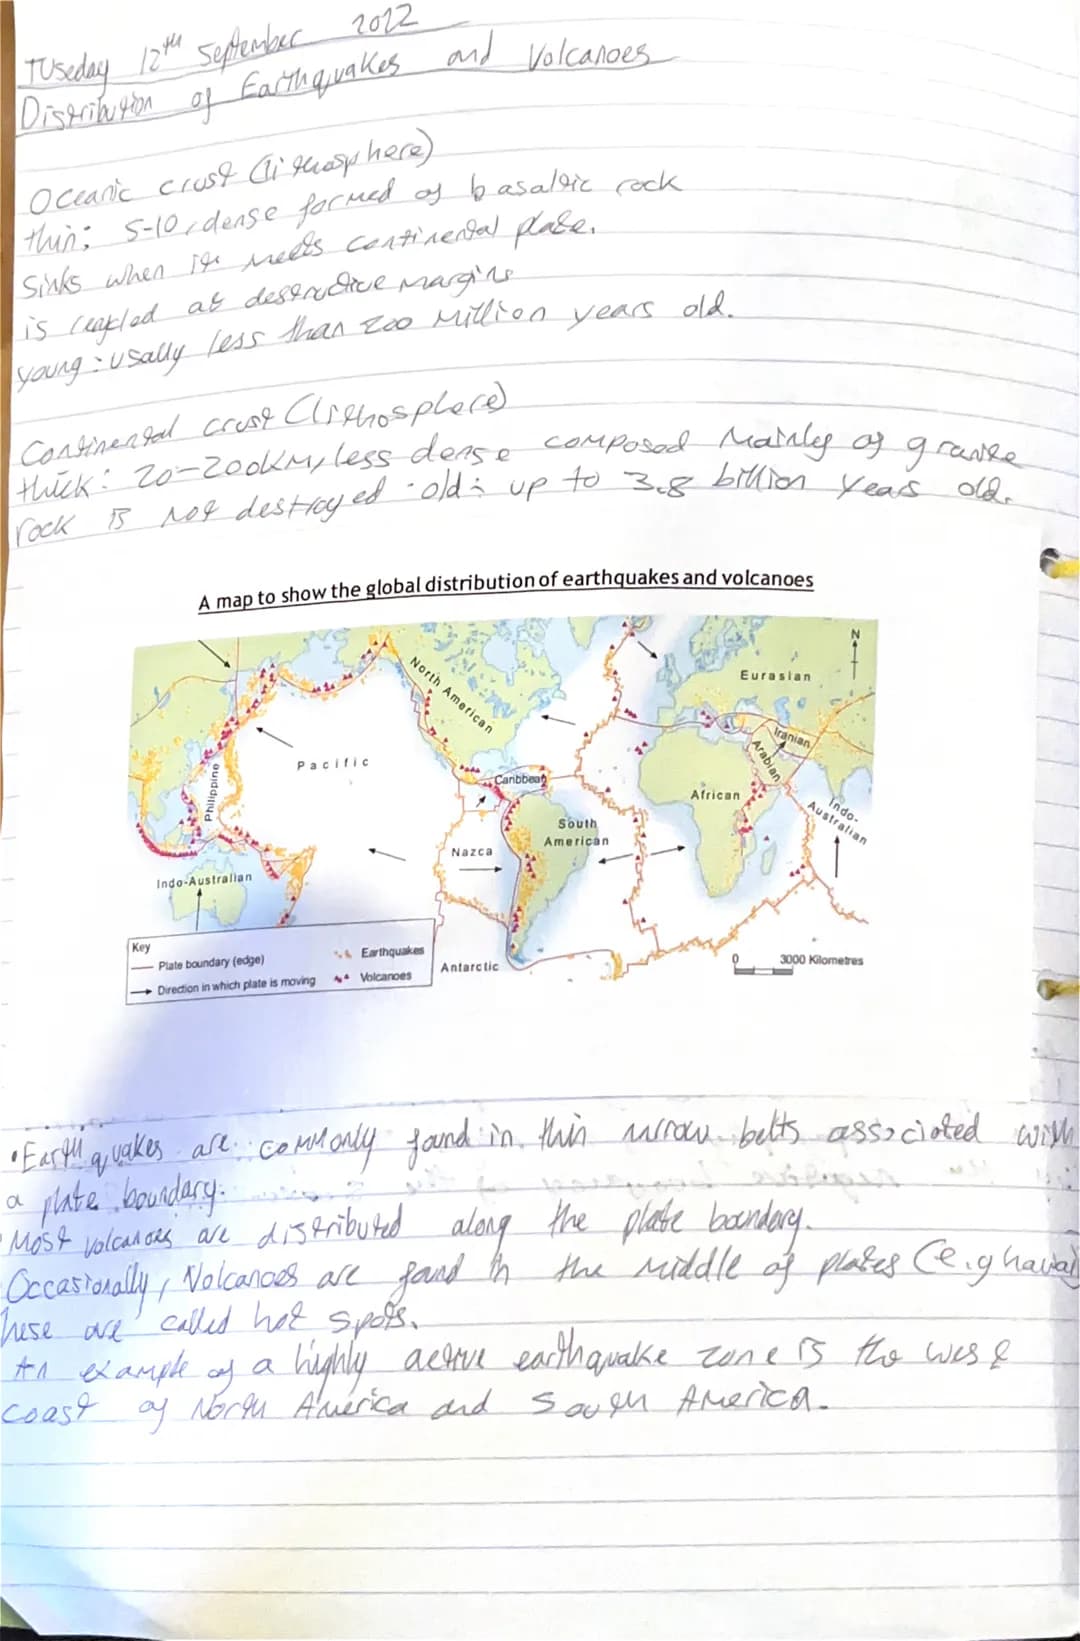 TUseday 12th September 2022
Distribution of Earthquakes and Volcanoes
Oceanic crust (lithosphere)
thin: 5-10, dense formed of basaltic rock
Sinks when it meets continental plate.
is recycled at destructive margins
young: usally less than 200 million years old.
Continental crust (lithosphere)
thick: 20-200km, less dense composed Mainley of granite
rock is not destroyed · old: up to 3.8 billion years old.
A map to show the global distribution of earthquakes and volcanoes
N
North American
Eurasian
Iranian
Arabian
Pacific
Philippine
Caribbean
African
Indo-
Australian
South
American
Nazca
Indo-Australian
Antarctic
Key
Plate boundary (edge)
Direction in which plate is moving
Earthquakes
Volcanoes
0 3000 Kilometres
• Earthquakes are commonly found in thin narrow belts associated with
a plate boundary.
Most volcanoes are distributed along the plate boundary.
Occasionally, Volcanoes are found in the middle of plates (e.g
these are called hot spots.
An example of a highly active earthquake zone is the west
coast of North America and South America.